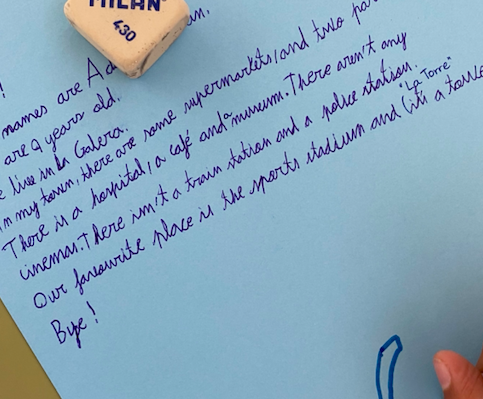 MILAN
430
!
names are
are 9 years old.
live in La Galera.
In my town, there are some supermarkets, and two
There is a hospital, a café and a museum. There aren't any
cinemas. There isn't a train station and a police station.
Our favourite place is the sports stadium and "La Torre" (it's a
Bye!